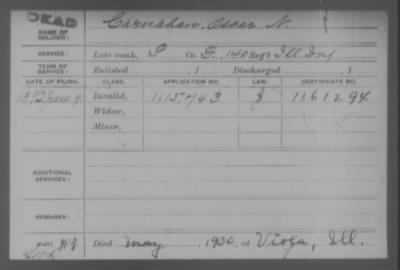 DEAD Carnahan, Oscar N.
NAME OF SOLDIER:
SERVICE: Late rank, P Co. G, 140 Reg't Ill. Inf
TERM OF SERVICE: Enlisted , 1 Discharged , 1
DATE OF FILING. CLASS. APPLICATION NO. LAW. CERTIFICATE NO.
Invalid, 1115743 1161294
Widow,
Minor,
ADDITIONAL SERVICES:
REMARKS:
Died May , 1930, at Viola, Ill.